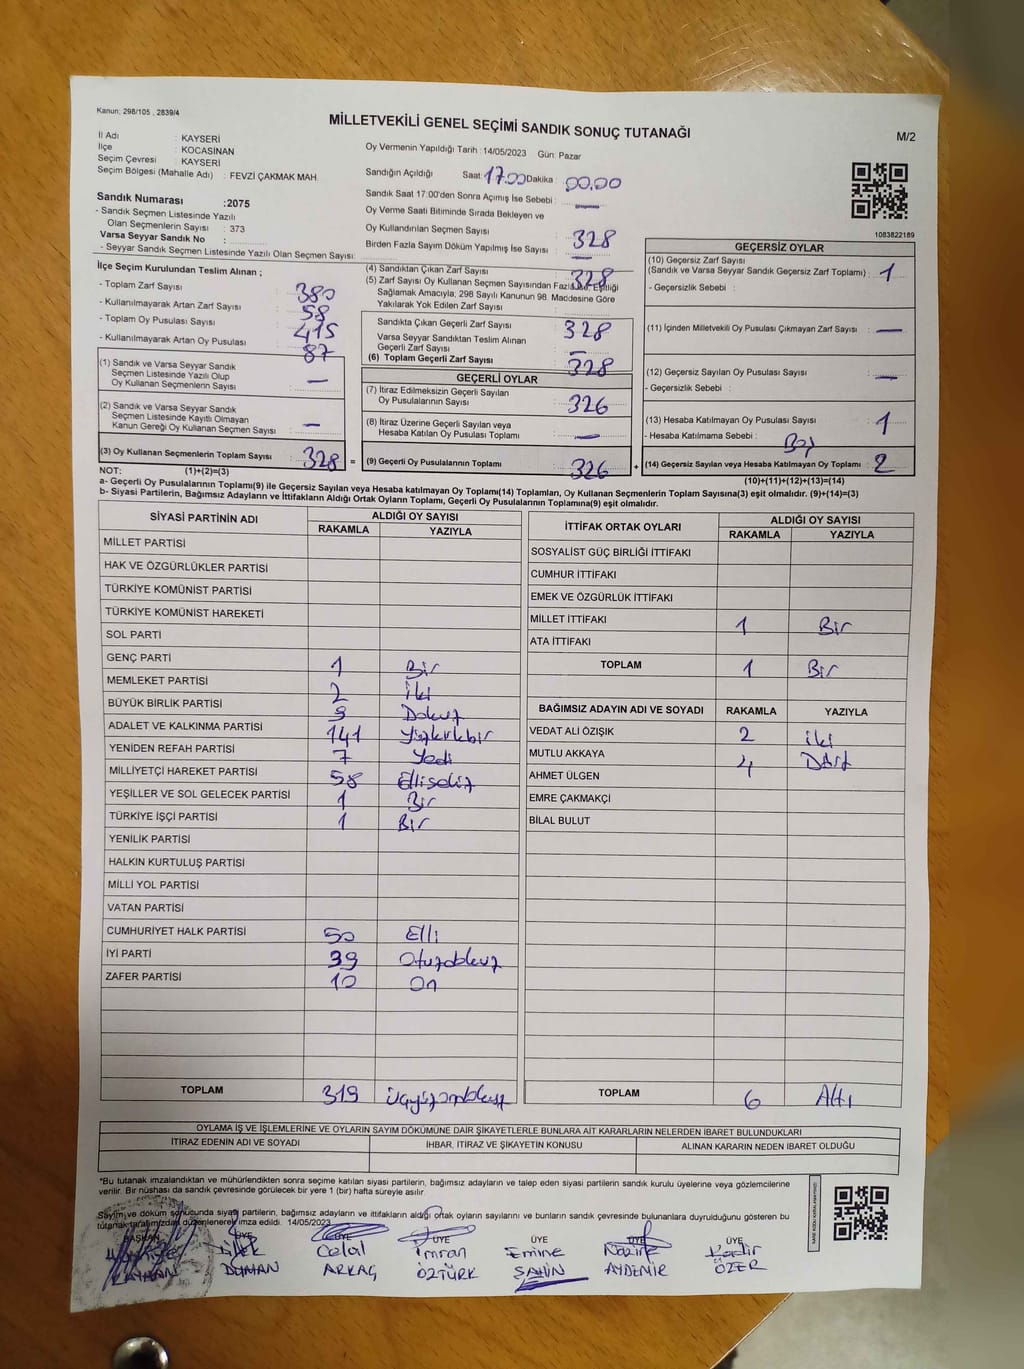 Kanun: 298/105 , 2839/4
MİLLETVEKİLİ GENEL SEÇİMİ SANDIK SONUÇ TUTANAĞI
M/2
İl Adı : KAYSERİ
İlçe : KOCASİNAN
Seçim Çevresi : KAYSERİ
Seçim Bölgesi (Mahalle Adı) : FEVZİ ÇAKMAK MAH.
Sandık Numarası :2075
- Sandık Seçmen Listesinde Yazılı
Olan Seçmenlerin Sayısı : 373
Varsa Seyyar Sandık No :
- Seyyar Sandık Seçmen Listesinde Yazılı Olan Seçmen Sayısı:
Oy Vermenin Yapıldığı Tarih :14/05/2023 Gün: Pazar
Sandığın Açıldığı Saat: 17.00 Dakika : 00.00
Sandık Saat 17:00'den Sonra Açımış İse Sebebi : —
Oy Verme Saati Bitiminde Sırada Bekleyen ve
Oy Kullandırılan Seçmen Sayısı : 328
Birden Fazla Sayım Döküm Yapılmış İse Sayısı :
1083822189
İlçe Seçim Kurulundan Teslim Alınan ;
- Toplam Zarf Sayısı : 380
- Kullanılmayarak Artan Zarf Sayısı : 58
- Toplam Oy Pusulası Sayısı : 415
- Kullanılmayarak Artan Oy Pusulası : 87
(1) Sandık ve Varsa Seyyar Sandık
Seçmen Listesinde Yazılı Olup
Oy Kullanan Seçmenlerin Sayısı : —
(2) Sandık ve Varsa Seyyar Sandık
Seçmen Listesinde Kayıtlı Olmayan
Kanun Gereği Oy Kullanan Seçmen Sayısı : —
(3) Oy Kullanan Seçmenlerin Toplam Sayısı : 328 =
(4) Sandıktan Çıkan Zarf Sayısı : 328
(5) Zarf Sayısı Oy Kullanan Seçmen Sayısından Fazla İse, Eşitliği
Sağlamak Amacıyla, 298 Sayılı Kanunun 98. Maddesine Göre
Yakılarak Yok Edilen Zarf Sayısı :
Sandıkta Çıkan Geçerli Zarf Sayısı : 328
Varsa Seyyar Sandıktan Teslim Alınan
Geçerli Zarf Sayısı : —
(6) Toplam Geçerli Zarf Sayısı : 328
GEÇERLİ OYLAR
(7) İtiraz Edilmeksizin Geçerli Sayılan
Oy Pusulalarının Sayısı : 326
(8) İtiraz Üzerine Geçerli Sayılan veya
Hesaba Katılan Oy Pusulası Toplamı : —
(9) Geçerli Oy Pusulalarının Toplamı : 326 +
GEÇERSİZ OYLAR
(10) Geçersiz Zarf Sayısı
(Sandık ve Varsa Seyyar Sandık Geçersiz Zarf Toplamı) : 1
- Geçersiz Sebebi :
(11) İçinden Milletvekili Oy Pusulası Çıkmayan Zarf Sayısı : —
(12) Geçersiz Sayılan Oy Pusulası Sayısı : —
- Geçersizlik Sebebi :
(13) Hesaba Katılmayan Oy Pusulası Sayısı : 1
- Hesaba Katılmama Sebebi : Boş
(14) Geçersiz Sayılan veya Hesaba Katılmayan Oy Toplamı : 2
NOT: (1)+(2)=(3)
(10)+(11)+(12)+(13)=(14)
a- Geçerli Oy Pusulalarının Toplamı(9) ile Geçersiz Sayılan veya Hesaba katılmayan Oy Toplamı(14) Toplamları, Oy Kullanan Seçmenlerin Toplam Sayısına(3) eşit olmalıdır. (9)+(14)=(3)
b- Siyasi Partilerin, Bağımsız Adayların ve İttifakların Aldığı Ortak Oyların Toplamı, Geçerli Oy Pusulalarının Toplamına(9) eşit olmalıdır.
SİYASİ PARTİNİN ADI ALDIĞI OY SAYISI
RAKAMLA YAZIYLA
MİLLET PARTİSİ
HAK VE ÖZGÜRLÜKLER PARTİSİ
TÜRKİYE KOMÜNİST PARTİSİ
TÜRKİYE KOMÜNİST HAREKETİ
SOL PARTİ
GENÇ PARTİ 1 Bir
MEMLEKET PARTİSİ 2 iki
BÜYÜK BİRLİK PARTİSİ 9 Dokuz
ADALET VE KALKINMA PARTİSİ 141 Yüzkırkbir
YENİDEN REFAH PARTİSİ 7 Yedi
MİLLİYETÇİ HAREKET PARTİSİ 58 Ellisekiz
YEŞİLLER VE SOL GELECEK PARTİSİ 1 Bir
TÜRKİYE İŞÇİ PARTİSİ 1 Bir
YENİLİK PARTİSİ
HALKIN KURTULUŞ PARTİSİ
MİLLİ YOL PARTİSİ
VATAN PARTİSİ
CUMHURİYET HALK PARTİSİ 50 Elli
İYİ PARTİ 39 Otuzdokuz
ZAFER PARTİSİ 10 On
TOPLAM 319 üçyüzondokuz
İTTİFAK ORTAK OYLARI ALDIĞI OY SAYISI
RAKAMLA YAZIYLA
SOSYALİST GÜÇ BİRLİĞİ İTTİFAKI
CUMHUR İTTİFAKI
EMEK VE ÖZGÜRLÜK İTTİFAKI
MİLLET İTTİFAKI 1 Bir
ATA İTTİFAKI
TOPLAM 1 Bir
BAĞIMSIZ ADAYIN ADI VE SOYADI RAKAMLA YAZIYLA
VEDAT ALİ ÖZIŞIK 2 iki
MUTLU AKKAYA 4 Dört
AHMET ÜLGEN
EMRE ÇAKMAKÇİ
BİLAL BULUT
TOPLAM 6 Altı
OYLAMA İŞ VE İŞLEMLERİNE VE OYLARIN SAYIM DÖKÜMÜNE DAİR ŞİKAYETLERLE BUNLARA AİT KARARLARIN NELERDEN İBARET BULUNDUKLARI
İTİRAZ EDENİN ADI VE SOYADI İHBAR, İTİRAZ VE ŞİKAYETİN KONUSU ALINAN KARARIN NEDEN İBARET OLDUĞU
*Bu tutanak imzalandıktan ve mühürlendikten sonra seçime katılan siyasi partilerin, bağımsız adayların ve talep eden siyasi partilerin sandık kurulu üyelerine veya gözlemcilerine
verilir. Bir nüshası da sandık çevresinde görülecek bir yere 1 (bir) hafta süreyle asılır.
Sayım ve döküm sonucunda siyasi partilerin, bağımsız adayların ve ittifakların aldığı ortak oyların sayılarını ve bunların sandık çevresinde bulunanlara duyrulduğunu gösteren bu
tutanak tarafımızdan düzenlenerek imza edildi. 14/05/2023
BAŞKAN ÜYE ÜYE ÜYE ÜYE ÜYE ÜYE
DİLEK Celal İmran Emine Nazire Kadir
KAYHAN DUMAN ARKAÇ ÖZTÜRK ŞAHİN AYDEMİR ÖZER